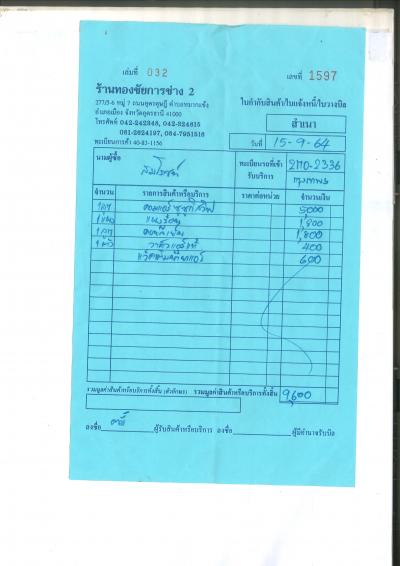 เล่มที่ 032 เลขที่ 1597
ร้านทองชัยการช่าง 2
277/5-6 หมู่ 7 ถนนอุดรดุษฎี ตำบลหมากแข้ง
อำเภอเมือง จังหวัดอุดรธานี 41000
โทรศัพท์ 042-242348, 042-324615
081-2624197, 084-7951516
ทะเบียนการค้า 40-83-1150
ใบกำกับสินค้า/ใบแจ้งหนี้/ใบวางบิล
สำเนา
วันที่ 15-9-64
นามผู้ซื้อ สมโภชน์ ทะเบียนรถที่เข้ารับบริการ 2กอ-2336 กรุงเทพฯ
จำนวน รายการสินค้าหรือบริการ ราคาต่อหน่วย จำนวนเงิน
1ลูก คอมแอร์ 5000
1แผง แผงร้อน 1,800
1ลูก 1,800
1ตัว วาล์วแอร์ 400
600
รวมมูลค่าสินค้าหรือบริการทั้งสิ้น (ตัวอักษร) รวมมูลค่าสินค้าหรือบริการทั้งสิ้น 9,600
ลงชื่อ ผู้รับสินค้าหรือบริการ ลงชื่อ ผู้มีอำนาจรับบิล